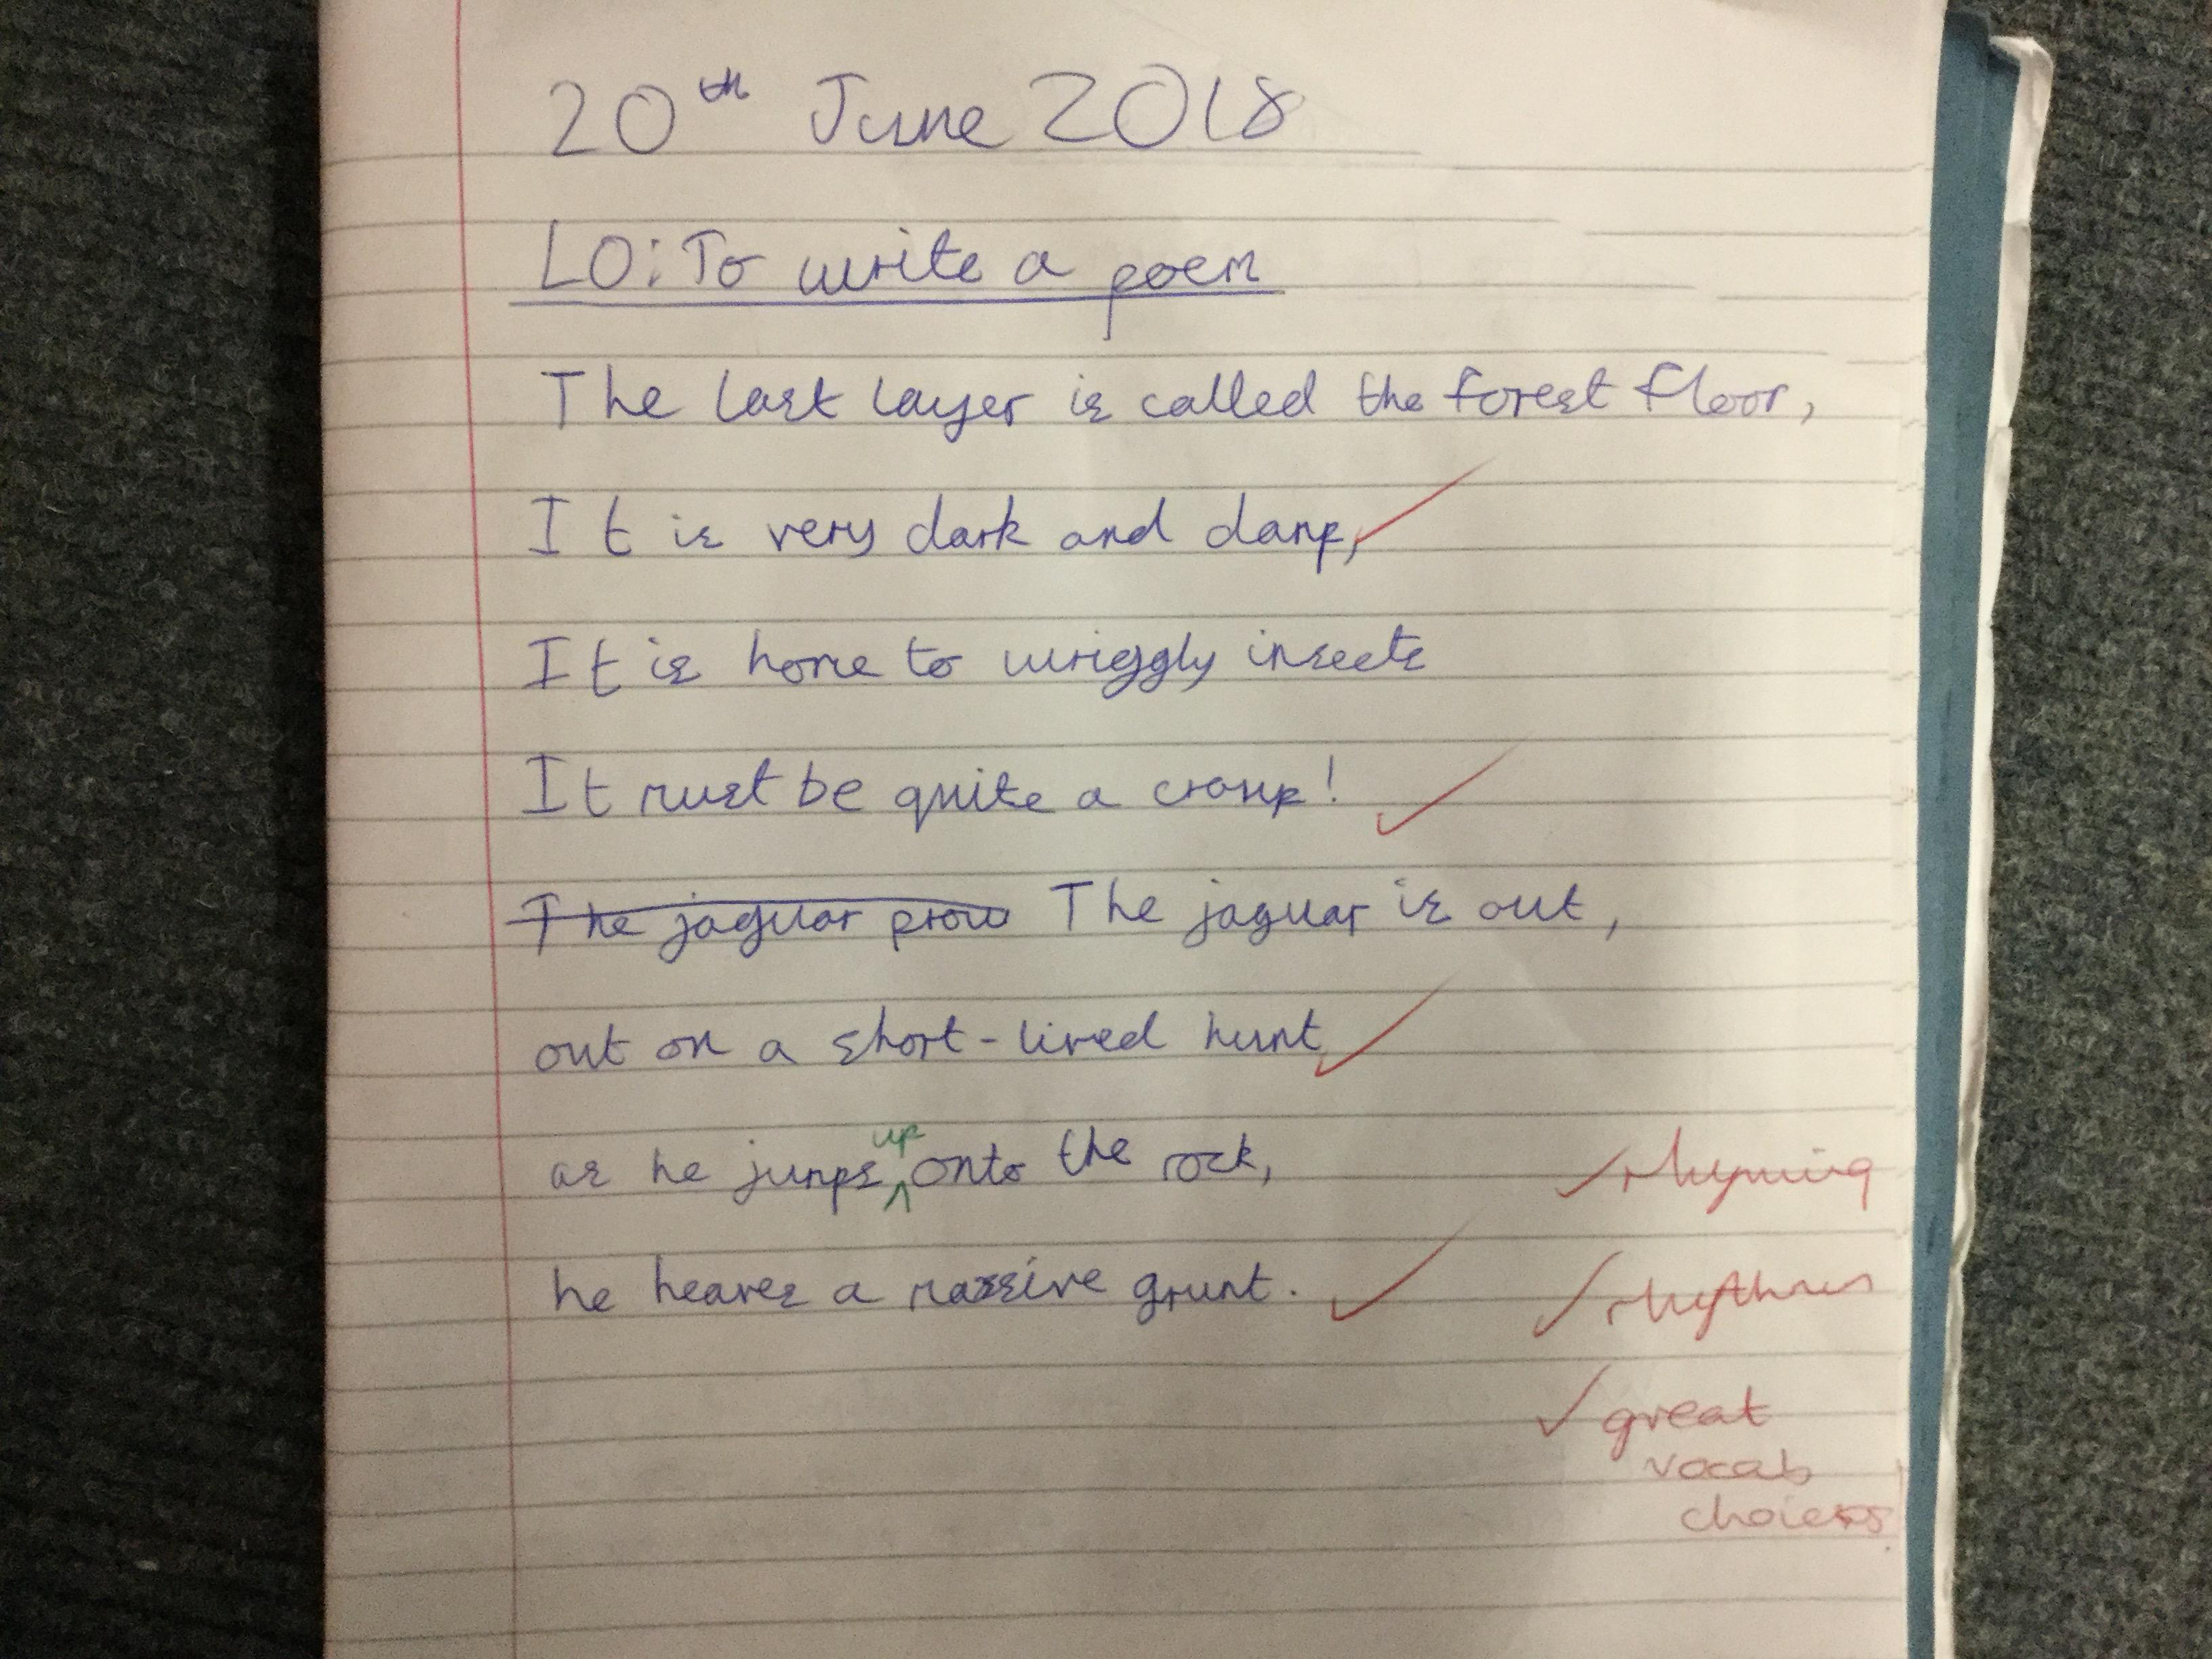 20th June 2018
LO: To write a poem
The last layer is called the forest floor,
It is very dark and damp,
It is home to wriggly insects
It must be quite a cramp!
The jaguar prow The jaguar is out,
out on a short-lived hunt
as he jumps up onto the rock,
he heaves a massive grunt.
rhyming
rhythm
great
vocab
choices